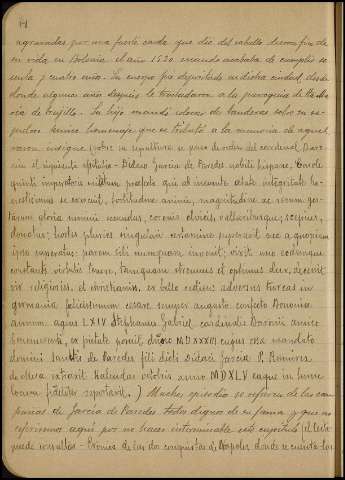 14
agravadas por una fuerte caida que dió del caballo dieron fin de
su vida en Bolonia el año 1530 cuando acababa de cumplir se
senta y cuatro años. Su cuerpo fue depositado en dicha ciudad, desde
donde algunos años después le trasladaron a la parroquia de Sta Ma
ria de Trujillo. Su hijo mandó colocar dos banderas sobre su se
pulcro único homenaje que se tributó a la memoria de aquel
varon insigne, sobre su sepultura se puso de orden del cardenal
el siguiente epitafio - Didaco Garcia de Paredes nobili hispano, Carole
quinti imperatoris militum prefecto qui ab ineunte etate integritate
se exercuit, fortitudine animi, magnitudine ac rerum ges
tarum gloria nemini secundus, coronis civicis, vallaribusque, sepius,
donatus; hostes pluries singulari certamine superavit ac a quoviam
ipse superatus: parem sibi numquam invenit; vixit uno eodemque
constanti virtutis tenore, tamquam strenuus et optimus dux, decessit
vir religiosis. et christianis, ex bello rediens adversus turcas in
germania felicissimum cesare semper augusto confecto Bononie
annum agens LXIV Stephanus Gabriel cardinalis amico
benemerenti, ex pietate posuit, MDXXXIII cujus ossa mandato
domini Santii de Paredes filii dicti Didaci Garcia P. Ramirez
de Mesa extraxit Kalendas octobris anno MDXLV eaque in hunc
locum fideliter reportavit.) Muchos episodios se refieren de las cam
pañas de Garcia de Paredes todos dignos de su fama y que no
referimos aqui por no hacer interminable este capitulo (el lector
puede consultar - Cronica de las dos conquistas de Napoles donde se cuentan los